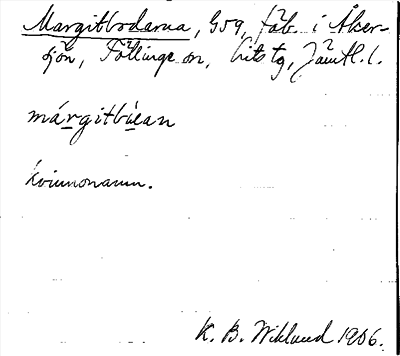 Margitbodarna, G59, fäb. i Åker-
sjön, Föllinge sn, hits tg, Jämtl. l.
márgitbúean
kvinnonamn.
K. B. Wiklund 1906.